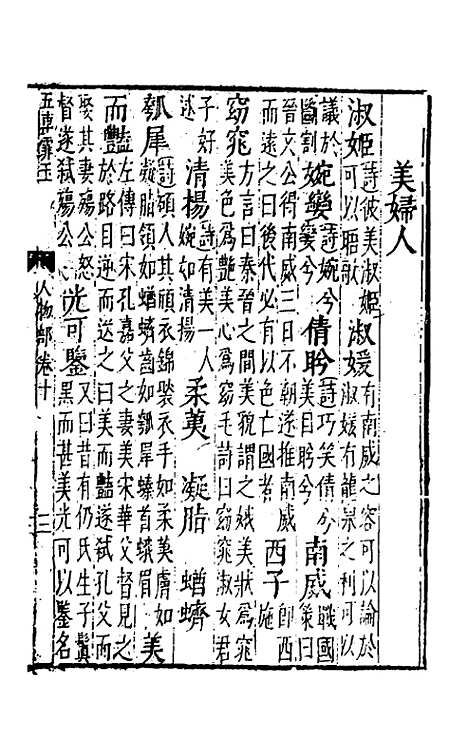 美婦人
淑姬詩彼美淑姬可以晤歌淑媛有南威之容可以論於淑媛有龍泉之利可以
議於斷割婉孌詩婉兮孌兮倩盻詩巧笑倩兮美目盻兮南威戰國策曰
晉文公得南威三日不朝遂推南威而遠之曰後代必有以色亡國者西子即西施
窈窕方言曰秦晉之間美貌謂之娥美狀為窕美色為艷美心為窈毛詩曰窈窕淑女君
子好逑清揚詩有美一人婉如清揚柔荑凝脂蝤蠐
瓠犀詩碩人其頎衣錦褧衣手如柔荑膚如凝脂領如蝤蠐齒如瓠犀螓首蛾眉美
而豔左傳曰宋孔嘉父之妻美宋華父督見之於路目逆而送之曰美而豔遂弑孔父而
娶其妻殤公怒督遂弑殤公光可鑒又曰昔有仍氏生子鬒黑而甚美光可以鑒名
人物部卷十